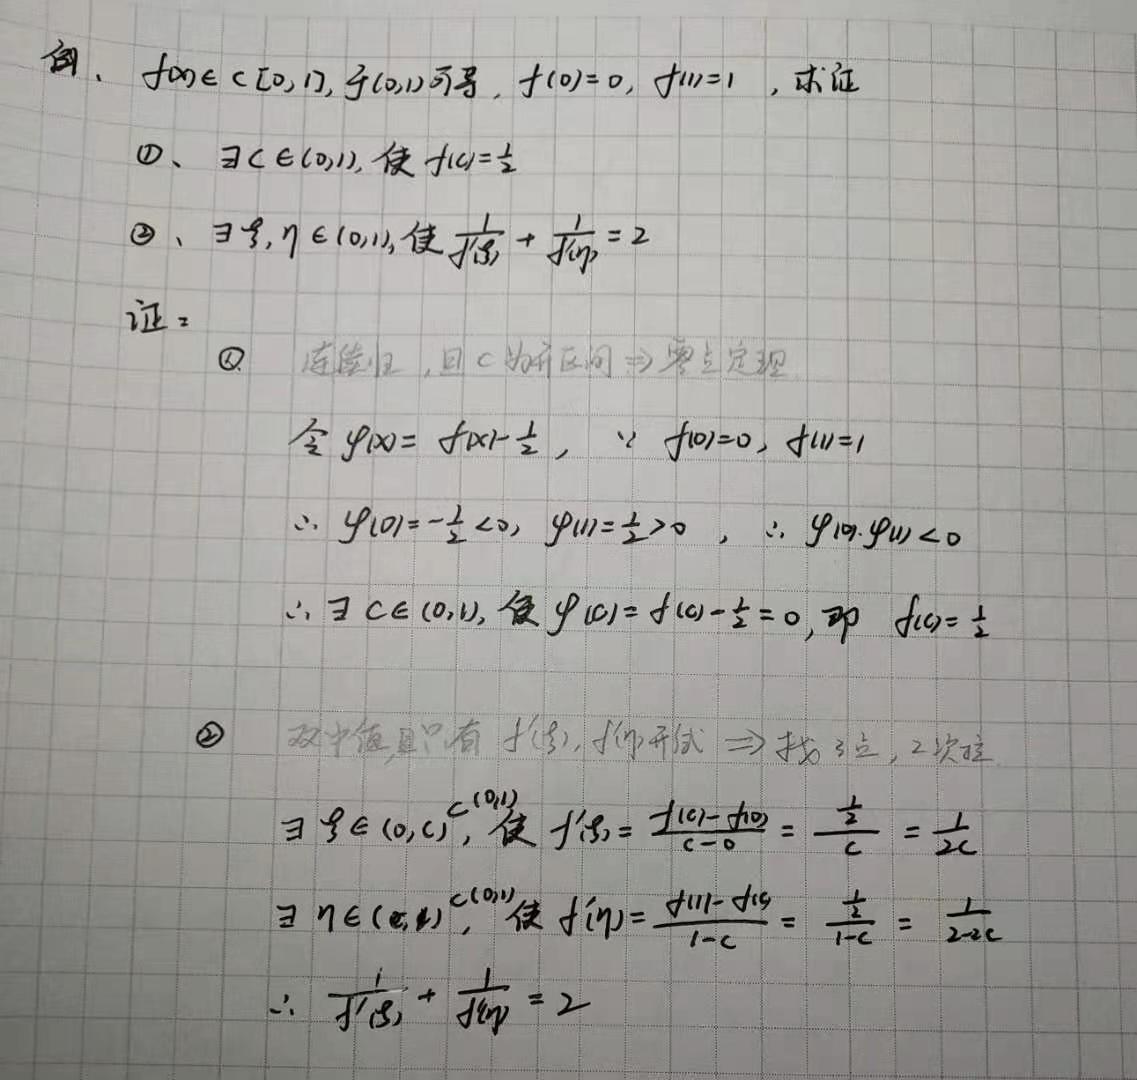 例、 f(x)∈C[0,1],于(0,1)可导, f(0)=0, f(1)=1 , 求证
①、 ∃c∈(0,1), 使 f(c)=1/2
②、 ∃ξ,η∈(0,1), 使 1/f'(ξ) + 1/f'(η) = 2
证:
① 连续性,且c为开区间⇒零点定理
令 φ(x)= f(x)-1/2 , ∵ f(0)=0, f(1)=1
∴ φ(0)=-1/2<0, φ(1)=1/2>0 , ∴ φ(0)·φ(1)<0
∴ ∃ c∈(0,1), 使 φ(c)= f(c)-1/2=0, 即 f(c)=1/2
② 双中值且只有 f'(ξ), f'(η)形式 ⇒ 找3点, 2次拉
∃ ξ∈(0,c)⊂(0,1), 使 f'(ξ)= (f(c)-f(0))/(c-0) = (1/2)/c = 1/2c
∃ η∈(c,1)⊂(0,1), 使 f'(η)= (f(1)-f(c))/(1-c) = (1/2)/(1-c) = 1/(2-2c)
∴ 1/f'(ξ) + 1/f'(η) = 2